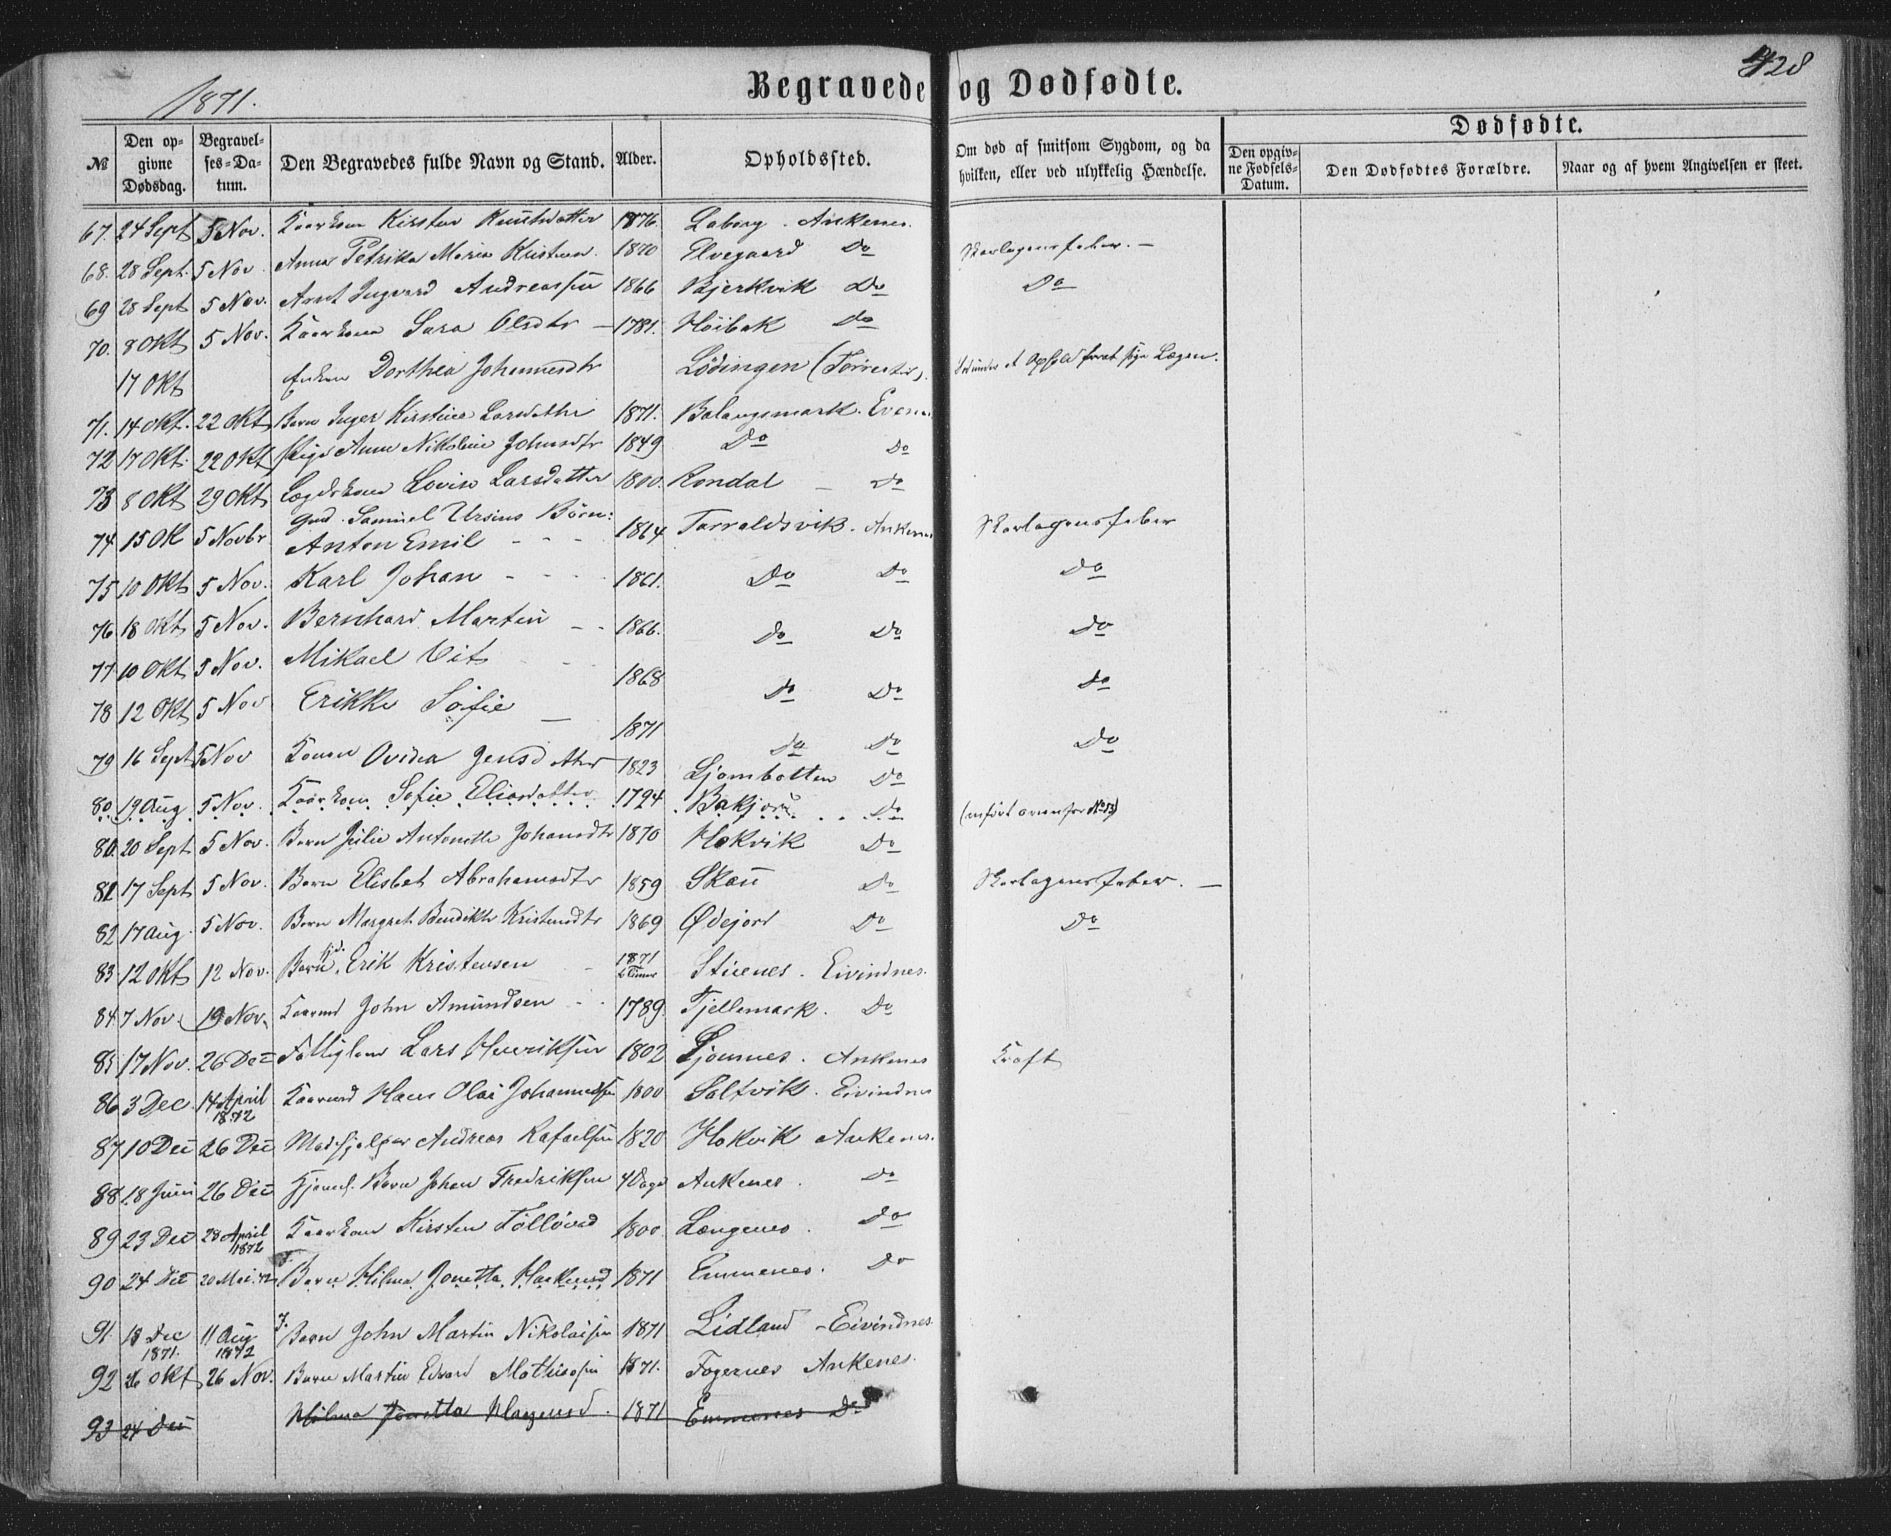 1871.
Begravede og Dødfødte.
428
№
Den opgivne Dødsdag.
Begravelses-Datum.
Den Begravedes fulde Navn og Stand.
Alder.
Opholdssted.
Om død af smitsom Sygdom, og da hvilken, eller ved ulykkelig Hændelse.
Dødfødte.
Den opgivne Fødsels-Datum.
Den Dødfødtes Forældre.
Naar og af hvem Angivelsen er skeet.
67. 24 Sept 5 Nov. Kaarkone Kirsten Knutsdatter 1876. Ankenes.
68. 28 Sept. 5 Nov. Anna Petrika Maria Kristens. 1870 Elvegaard Do Skarlagensfeber. —
69 28 Sept 5 Nov. Arnt Ingvard Andreassen 1866 Bjerkvik Do Do
70. 8 Okt 5 Nov. Kaarkone Sara Olsdtr — 1781. Høibak Do
17 Okt Enken Dorthea Johannesdtr Lødingen
71. 14 Okt. 22 Okt Barn Inger Kirstine Larsdatter 1871. Balangsmark. Evenes
72 17 Okt. 22 Okt Pige Anne Nikoline Johnsdtr 1849 Do Do
73 8 Okt 29 Okt Lægdskone Lovise Larsdatter 1800. Rondal — Do
Gmd. Samuel Ursins Børn:
74 15 Ok 5 Novbr Anton Emil - - - 1864 Tarraldsvik. Ankenes Skarlagensfeber
75 10 Okt 5 Nov. Karl Johan - - - 1861. Do Do Do
76 18 Okt 5 Nov. Bernhard Martin - - 1866. Do Do Do
77 10 Okt 5 Nov. Mikael Vit - - 1868 Do Do Do
78 12 Okt 5 Nov Erikke Sofie — 1871 Do Do Do
79 16 Sept 5 Nov Konen Ovidia Jensdatter 1823 Ljombotten Do
80 19 Aug 5 Nov. Kaarkone Sofie Eliasdatter 1794 Do (anført ovenfor No 53)
80. 20 Sept 5 Nov. Barn Julie Antonette Johansdtr 1870 Hokvik Do
81 17 Sept 5 Nov. Barn Elisbet Abrahamsdtr 1859 Do Skarlagensfeber. —
82 17 Aug. 5 Nov. Barn Margret Bendikte Kristensdtr 1869 Ødejord Do Do
83 12 Okt 12 Nov. Barn Erik Kristensen - 1871 Eivindnes.
84 7 Nov. 19 Nov. Kaarmd John Amundsen - - 1789. Fjellemark. Do
85 17 Nov. 26 Dec Fattiglem Lars Henriksen 1802 Ankenes Kræft
86 3 Dec 14 April 1872 Kaarmd Hans Olai Johannessen 1800 Saltvik. Eivindnes
87 10 Dec 26 Dec Andreas Rafaelsen 1820 Hokvik Ankenes.
88 18 Juni 26 Dec Hjemd. Barn Johan Fredriksen 4 Dage Ankenes. Do
89 23 Dec 28 April 1872 Kaarkone Kirsten 1800 Længenes. Do
90 24 Dec 20 Mai 72 Barn Hilma Jonetta Haakensd 1871 Emmenes. Do
91. 18 Dec 1871. 11 Aug 1872 Barn John Martin Nikolaisen 1871 Lidland - Eivindnes
92 26 Okt 26 Nov. Barn Martin Edvard Mathisen 1871. Fagernes Ankenes.
93 24 Dec Hilma Jonetta Haagensd. 1871 Emmenes Do